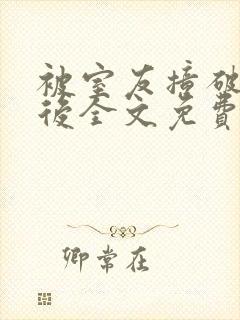 被室友撞破
後全文免費
卿常在